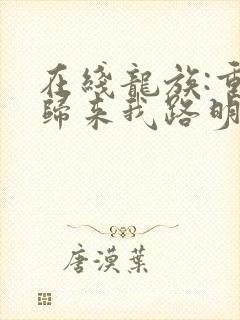 在綫龍族:重
歸来我路明
唐漠葉